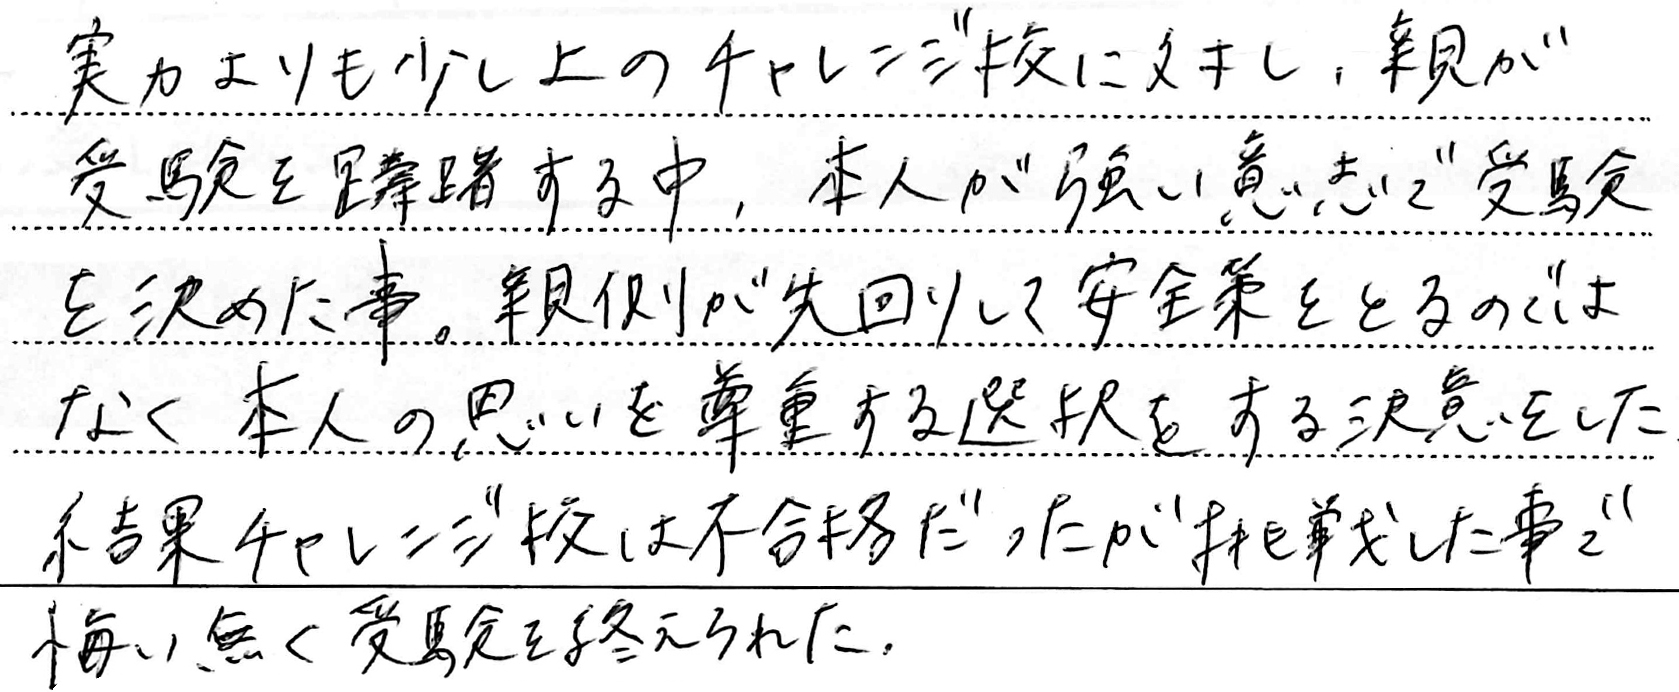 実力よりも少し上のチャレンジ校に対し、親が
受験を躊躇する中、本人が強い意志で受験
を決めた事。親側が先回りして安全策をとるのでは
なく本人の思いを尊重する選択をする決意をした
結果チャレンジ校は不合格だったが挑戦した事で
悔い無く受験を終えられた。